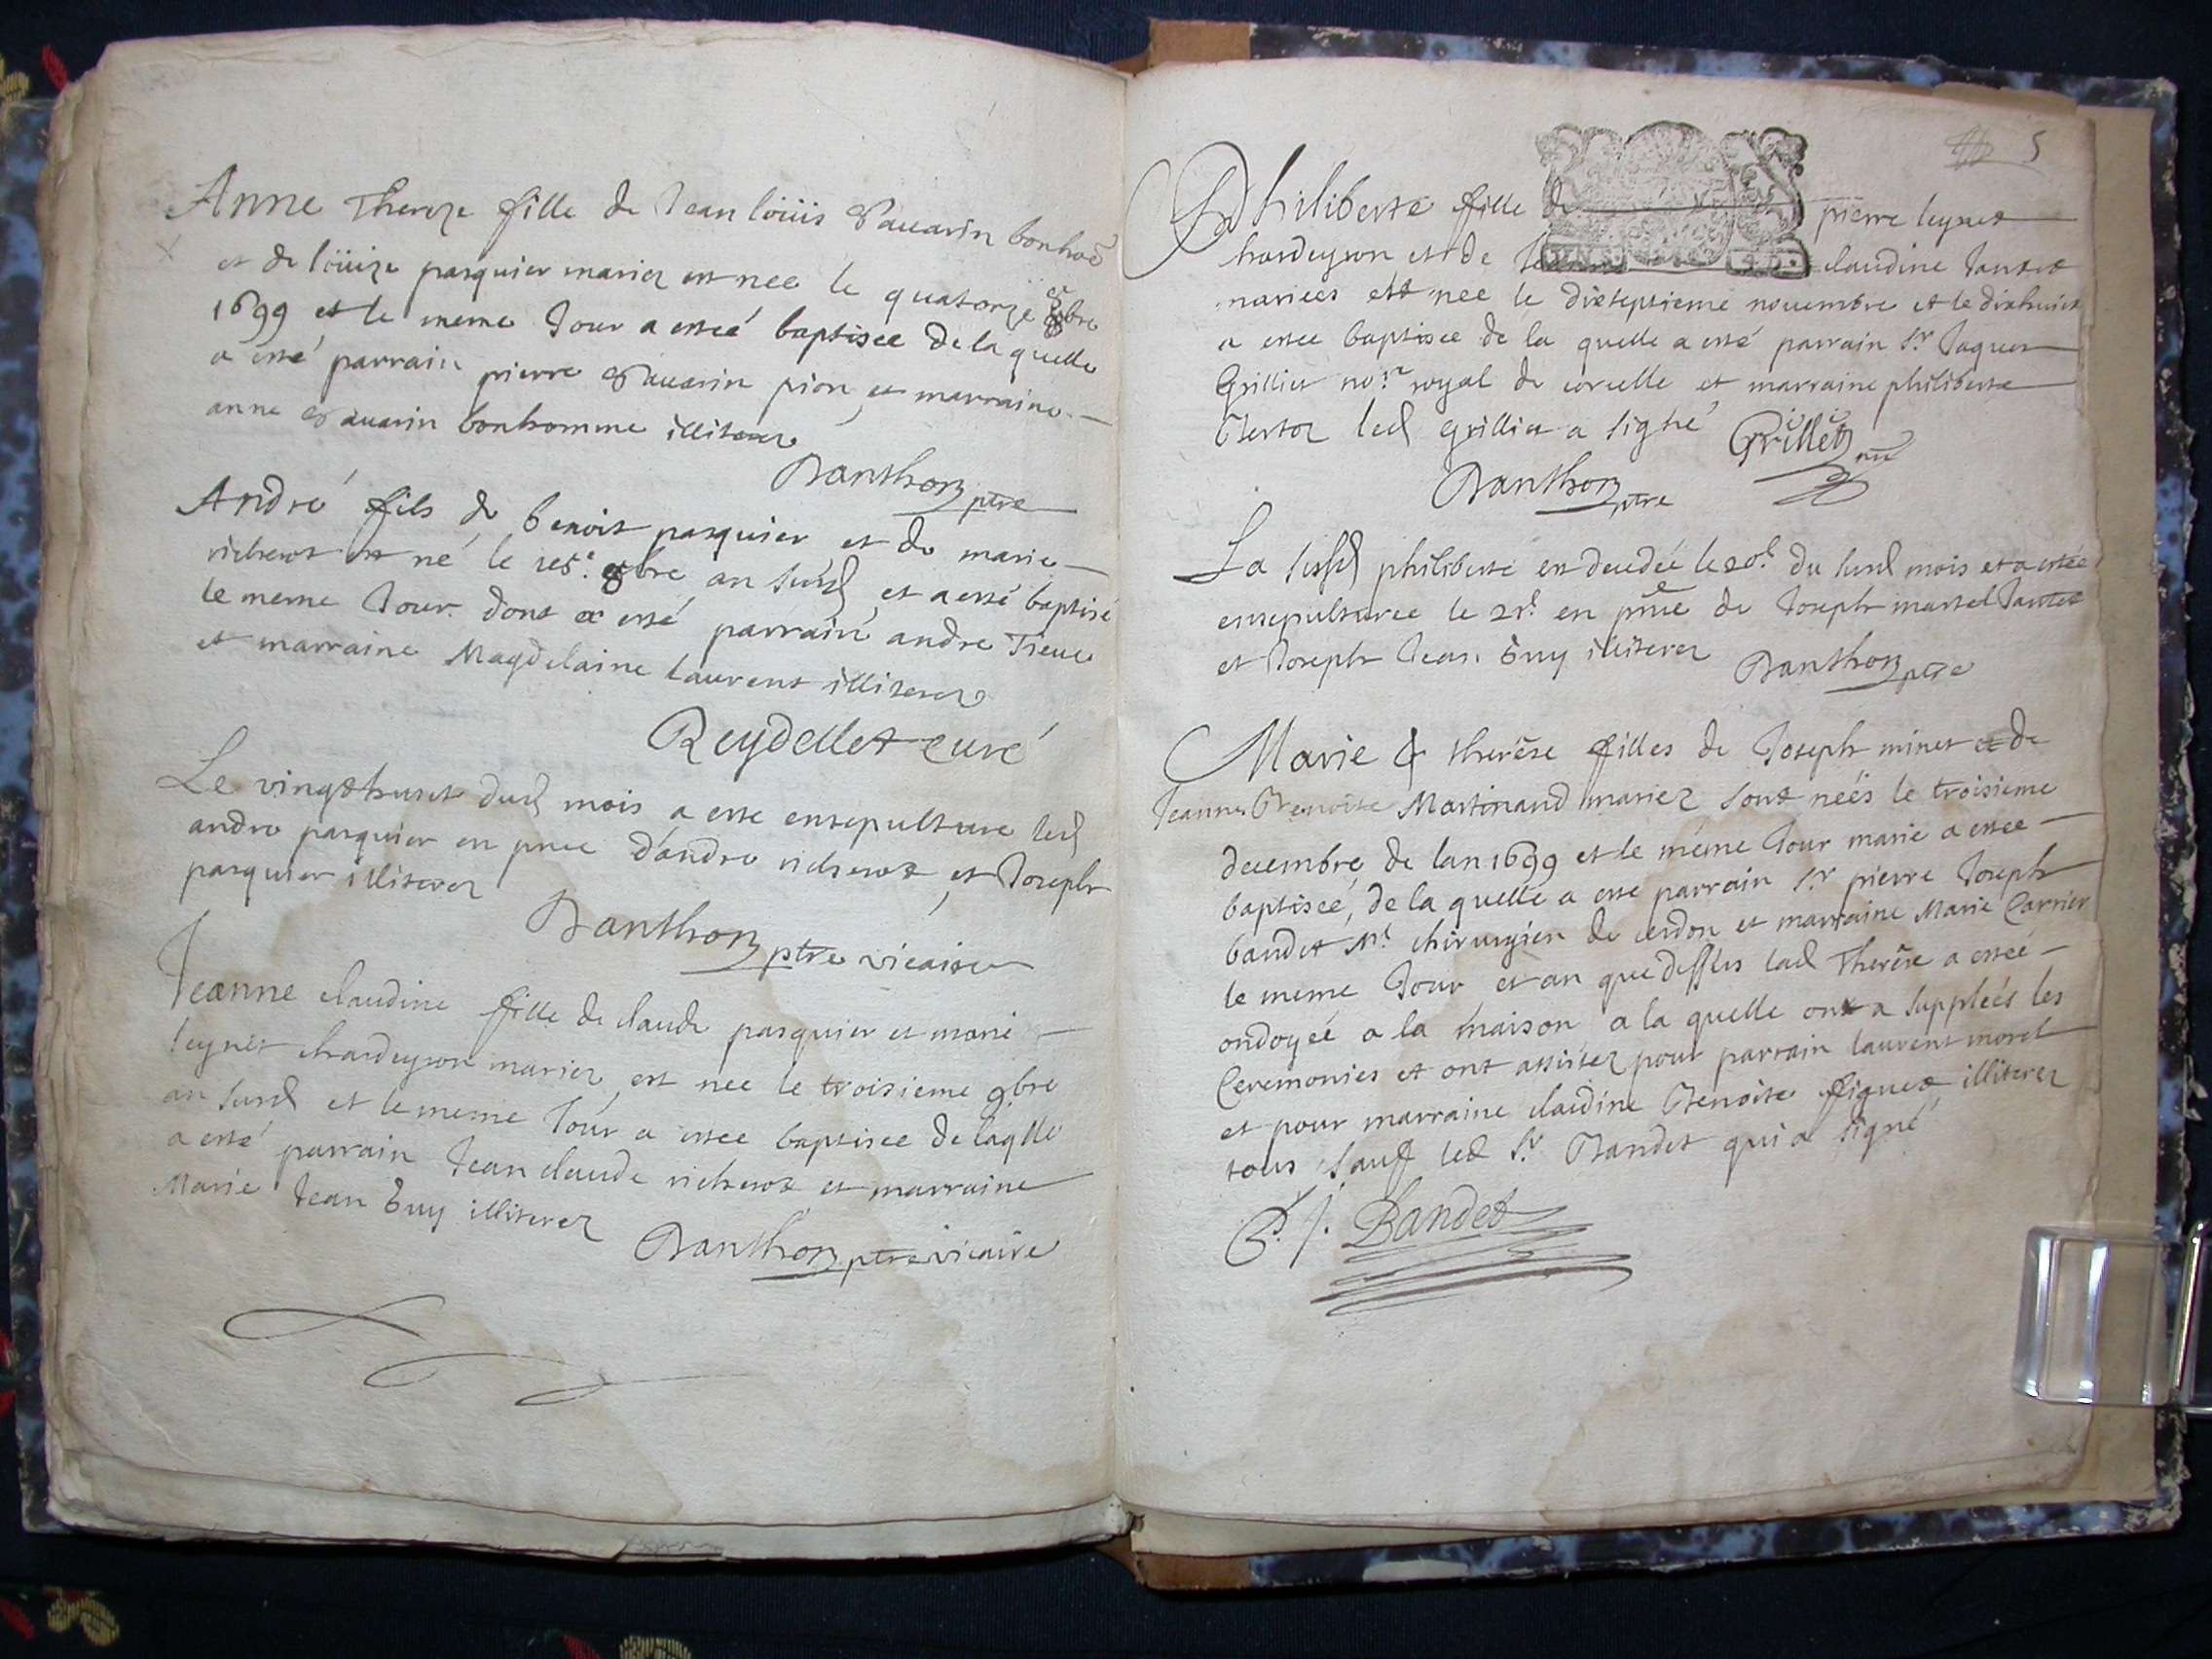 Anne Thereze fille de Jean löüis Sauarin bonhoe
et de löüize pasquier mariez est nee le quatorze 8bre
1699 et le meme Jour a esteé baptisee de la quelle
a esté parrain pierre Sauarin pion et marraine
anne Sauarin bonhomme illiterez
Danthon ptre
André fils de benoit pasquier et de marie
richerot est né le 15e. 8bre an susd et a esté baptisé
le meme Jour dont a esté parrain andre
et marraine Magdelaine laurent illiterez
Reydellet curé
Le vingthuict dud mois a este ensepulture led
andre pasquier en pnce d'andre richerot et Joseph
pasquier illiterez
Danthon ptre vicaire
Jeanne claudine fille de claude pasquier et marie
leynet chardeyron mariez est nee le troisieme 9bre
an susd et le meme Jour a estee baptisee de laqlle
a esté parrain Jean claude richerot et marraine
Marie Jean Guy illiterez
Danthon ptre vicaire
5
Philiberte fille de pierre leynet
chardeyron et de claudine Jantet
mariees est nee le dixseptieme nouembre et le dixhuict
a estee baptisee de la quelle a esté parrain Sr Jaques
Grilliet nore royal de corcelle et marraine philiberte
led grilliet a signé Grillet nre
Danthon ptre
La susd philiberte est decedeé le 20e. du susd mois et a estée
ensepulturee le 21e. en pnce de Joseph martel Jantet
et Joseph Jean Guy illiterez
Danthon ptre
Marie & therêse filles de Joseph minet et de
Jeanne Benoite Martinand mariez sont neés le troisieme
decembre de lan 1699 et le méme Jour marie a estee
baptiseé, de la quelle a este parrain Sr pierre Joseph
bandet Me chirurgien de cerdon et marraine Marie Carrier
le meme Jour et an que dessus lad Therêse a esteé
ondoyeé a la maison a la quelle ont a suppleés les
Ceremonies et ont assistez pour parrain laurent morel
et pour marraine claudine Benoite figuet illiterez
tous sauf led Sr Bandet qui a signé
P. J. Bandet